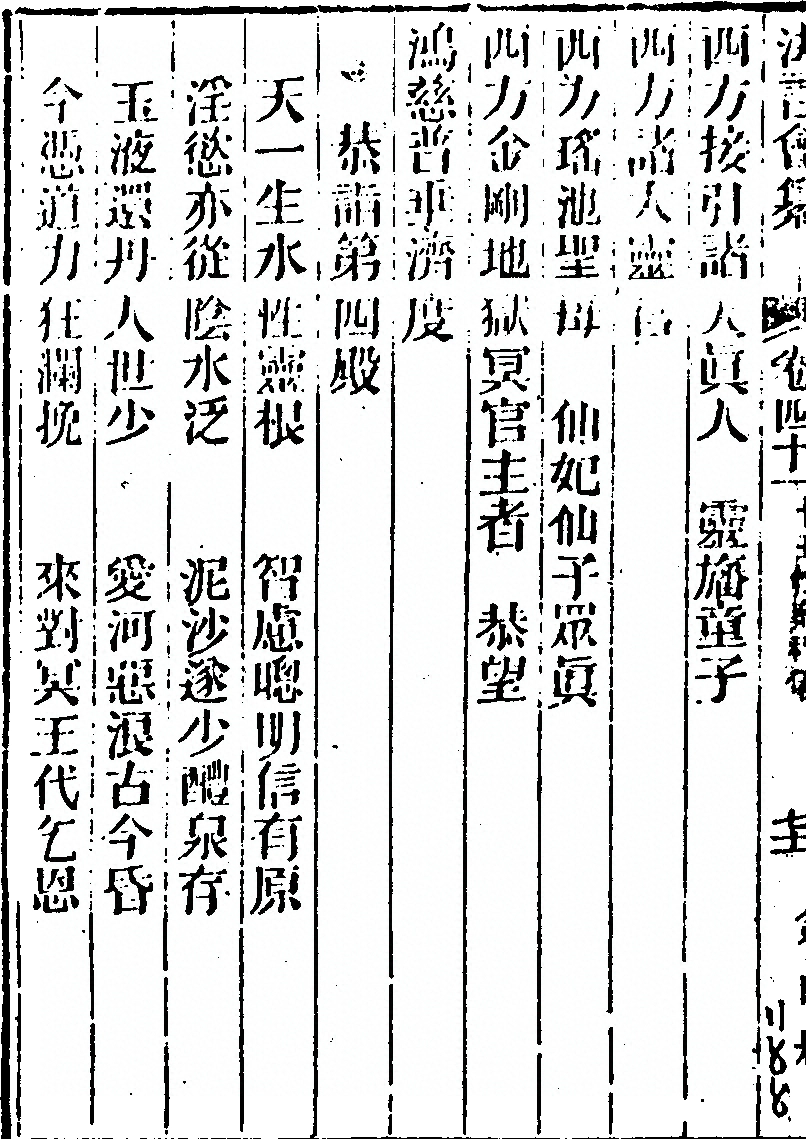 法言會纂 卷四十
西方接引諸大眞人 靈旛童子
西方諸大靈官
西方瑤池聖母 仙妃仙子眾眞
西方金剛地獄冥官主者 恭望
鴻慈普垂濟度
恭詣第四殿
天一生水性靈根 智慮聰明信有原
淫慾亦從陰水泛 泥沙遂少醴泉存
玉液還丹人世少 愛河惡浪古今昏
今憑道力狂瀾挽 來對冥王代乞恩